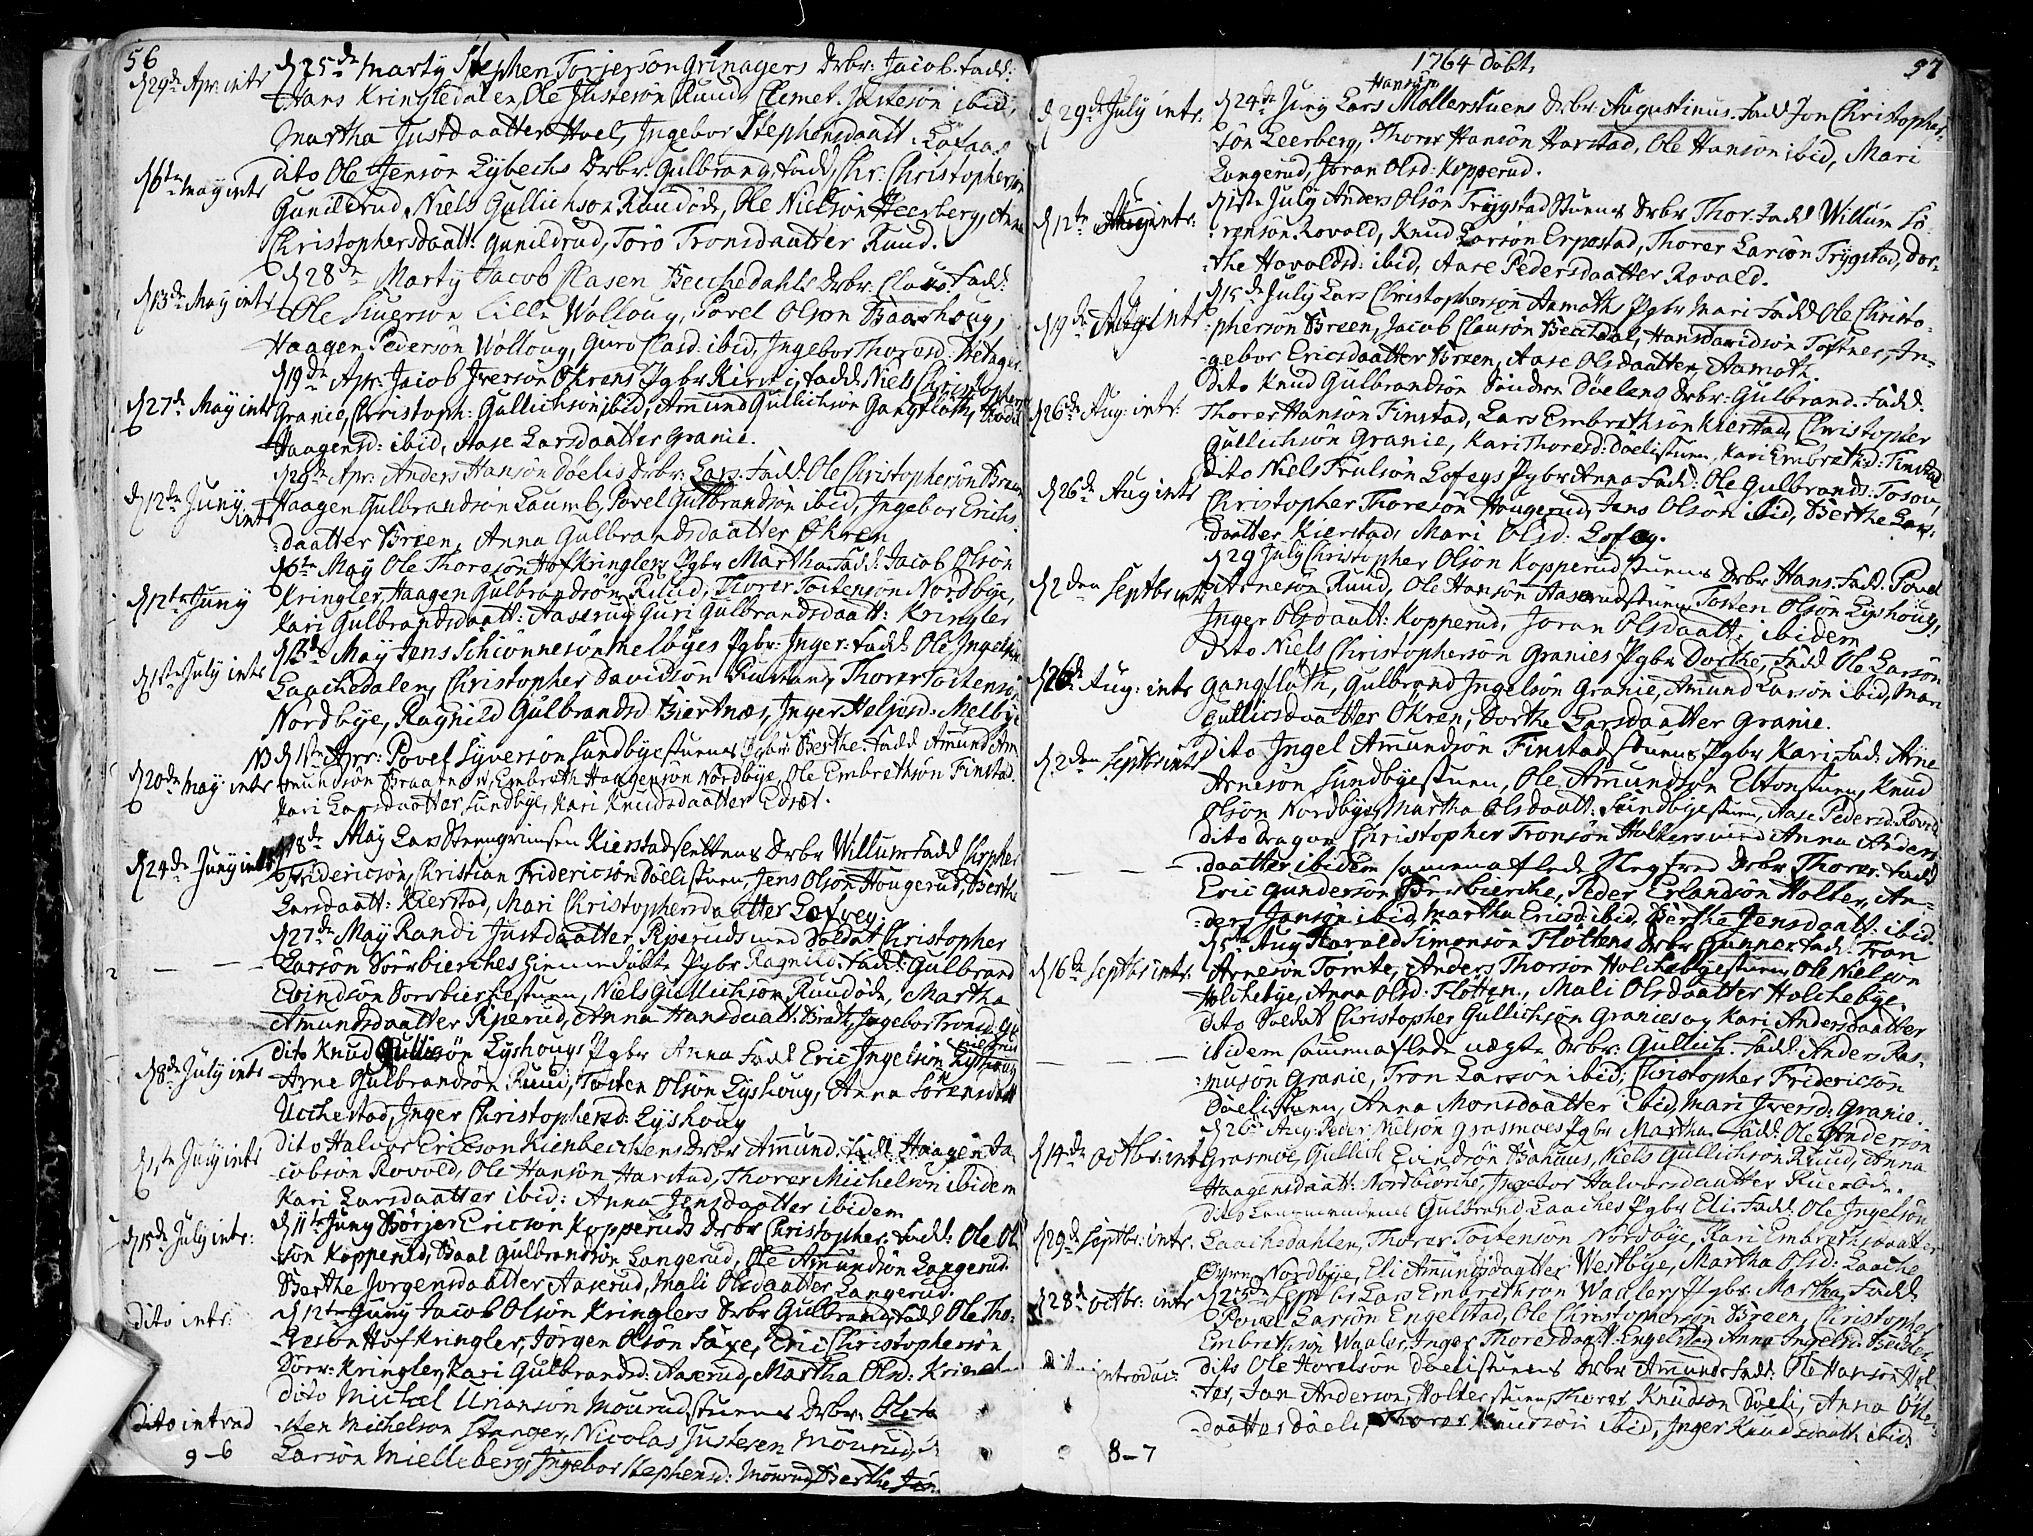 56
d 25de Marty Stephen Torjersön Grinagers Drbr: Jacob. Fadd:
d 29de Apr: intr
Hans Kringledalen, Ole Justesön Ruud, Clemet Justesön ibid,
Martha Justdaatter Hoel, Ingebor Stephensdaatt: Løfaas
dito Ole Jensön Lybechs Drbr: Gulbrand, Fadd, Chr: Christophersön
d 6te may intr
Gunildrud, Niels Gullichson Ruudöde, Ole Nielsön Heerberg, Anne
Christophersdaatt: Gunildrud, Toro Tronsdaatter Ruud.
d 28de Marty Jacob Clasen Becchedahls Drbr: Claus. Fadd:
d 13de May intr
Ole Siuersön Lille Wölloug, Povel Olson Baashoug,
Haagen Pedersön Wölloug, Guro Clasd: ibid, Ingebor Thoresd:
d 19de Apr: Jacob Iversön Okrens Pgbr Kirsti, Fadd: Niels Christophersön
d 27de May intr
Granie, Christoph: Gullichsön ibid, Amund Gullichsön Gangfloth,
Haagensd: ibid, Aase Larsdaatter Granie.
d 28de Apr: Anders Hansön Döelis Drbr: Lars. Fadd: Ole Christophersön Breen
d 12te Juny intr
Haagen Gulbrandsön Laumb, Povel Gulbrandsön ibid, Ingebor Erichs-
daatter Breen, Anna Gulbrandsdaatter Okren
d 6te May Ole Thoresön Hofkringlers Pgbr Martha Fadd: Jacob Olsön
d 12te Juny
Kringler, Haagen Gulbrandsön Ruud, Thorer Tostensön Nordbye,
Kari Gulbrandsdaatt: Aaserud, Guri Gulbrandsdaatt: Kringler
May Jens Schiönnesön Melbyes Pgbr: Inger: Fadd: Ole Ingelsön
d 1ste July intr
Laachedalen, Christopher Davidsön Rustand, Thorer Tostensön
Nordbye, Ragnild Gulbrandsd Biertnæs, Inger Heljesd: Melbye
NB d 1ste Apr: Povel Syversön Sundbyestuens Pgbr Berthe. Fadd Amund Am
d 20de may intr
mundsön Braatness, Embreth Haagensön Nordbye, Ole Embrethsön Finstad.
Kari Larsdaatter Sundbye, Kari Knudsdaatter Edset.
d 8de May Lars Steengrimsen Kierstad Slettens Drbr Willum Fadd Chrpher
d 24de Juny intr
Fridericsön, Christian Fridericsön Döelistuen, Jens Olsön Hougerud, Berthe
Larsdaatt: Kierstad, Mari Christophersdaatter Løfvey.
d 27de May Randi Justdaatter Rjseruds med Soldat Christopher
— — —
Larsön Sörrbierches hiemme döbte Pgbr Ragnild: Fadd: Gulbrand
Evindsön Sorrbierkestuen, Niels Gullichsön Ruudöde, Martha
Amundsdaatter Rjserud, Anna Hansdaatt: Brath, Ingebor Tronsd
dito Knud Gullicsön Lyshougs Pgbr Anna Fadd Eric Ingelsön Lysshoug
d 8de July intr
Arne Gulbrandsön Ruud, Tosten Olsön Lyshoug, Anna Sörensdatt
Ucchestad, Inger Christophersd: Lyshoug
dito Halvor Ericson Kienbecchens Drbr Amund. Fadd: Haagen Ja-
d 1ste July intr
cobson Rovold, Ole Hansön Harstad, Thorer Michelsön ibidem
Kari Larsdaatter ibid: Anna Jensdaatter ibidem
d 11te Juny Börger Ericsön Kopperuds Drbr Christopher. Fadd: Ole Ol
d 15de July intr:
sön Kopperud, Baal Gulbrandsön Langerud, Ole Amundsön Langerud.
Berthe Jorgensdaatter Aaserud, Mali Olsdaatter Langerud.
d 12te Juny Jacob Olsön Kringlers Drbr Gulbrand, Fadd Ole Tho-
dito intr:
resön Hofkringler, Jörgen Olsön Saxe, Eric Christophersön
Sörr: Kringler, Kari Gulbrandsd: Aaserud, Martha Olsd: Kringl
dito Michel Unansön Mourudstuens Drbr: Ole
dito introd
sten Michelson Stanger, Nicolas Justesen Mourud,
9–6
Larsön Mielleberg, Ingebor Stephensd: Mourud, Berthe

1764 döbt,
57
Hansön
d 24de Juny Lars Mollerstuens Drbr: Augustinus. Fadd Jon Christopher-
d 29de July intr.
sön Leerberg, Thorer Hansön Harstad, Ole Hansön ibid, Mari
Langerud, Joran Olsd: Kopperud.
d 1ste July Anders Olsön Trygstad Stuens Drbr Thor. Fadd Willum Sö-
d 12te Aug intr:
rensön Rovold, Knud Larsön Erpestad, Thorer Larsön Trygstad, Dor-
the Havoldsd: ibid, Aase Pedersdaatter Rovald.
d 15de July Lars Christophersön Aamoths Pgbr Mari Fadd Ole Christo-
d 19de Aug: intr
phersön Breen, Jacob Clausön Becchedal, Hans Davidsön Tostner, In-
gebor Ericsdaatter Breen, Aase Olsdaatter Aamoth
dito Knud Gulbrandsön Söndre Döelens Drbr: Gulbrand. Fadd:
d 26de Aug: intr:
Thorer Hansön Finstad, Lars Embrethsön Kierstad, Christopher
Gullichsön Granie, Kari Thoresd: Döelistuen, Kari Embrethsd: Finstad
dito Niels Trulsön Lofoys Pgbr Anna Fadd: Ole Gulbrands: Tosov,
d 26de Aug intr
Christopher Thoresön Hougerud, Jens Olsön ibid, Berthe Lars-
daatter Kierstad, Mari Olsd: Lofoy.
d 29 July Christopher Olsön Kopperudstuens Drbr Hans: Fadd: Povel
d 2den Septbr intr
Arnesön Ruud, Ole Hansön Haserudstuen, Tosten Olsön Lyshoug,
Inger Olsdaatt: Kopperud, Joran Olsdaatt: ibidem
dito Niels Christophersön Granies Pgbr Dorthe, Fadd Ole Larsön
d 26de Aug: intr
Gangfloth, Gulbrand Ingelsön Granie, Amund Larsön ibid, Mari
Gullicsdaatter Okren, Dorthe Larsdaatter Granie.
dito Ingel Amundsön Finstad stuens Pgbr Kari. Fad: Arne
d 2den Septbr intr
Arnesön Sundbyestuen, Ole Amundsön Eltonstuen, Knud
Olsön Nordbye, Martha Olsdaatt: Sundbyestuen, Aase Pedersd: Rovold
dito Dragon Christopher Tronsön Holters med Anna Anders-
— — —
daatter ibidem sammenaflede Slegfred Drbr Thorer. Fadd
Eric Gundersön Sörbierche, Peder Erlandsön Holter, An-
ders Jansön ibid, Martha Ericsd: ibid, Bertha Jensdaatt: ibid.
d 5te Aug Harald Simensön Flöttens Drbr Gunner Fad: Tron
d 16de Septbr intr.
Arnesön Tomte, Anders Thorsön Holchebyestuen, Ole Nielsön
Holchebye, Anna Olsd: Flotten, Mali Olsdaatter Holchebye.
dito Soldat Christopher Gullichsön Granies og Kari Andersdaatter
— — —
ibidem sammenaflede uægte Drbr: Gullich. Fadd: Anders Ras-
musön Granie, Tron Larsön ibid; Christopher Fridericsön
Döelistuen, Anna Monsdaatter ibid, Mari Iversd: Granie.
d 26de Aug: Peder Nielsön Grasmoes Pgbr Martha. Fadd: Ole Anderson
d 14de Octbr: intr
Grasmoe, Gullich Evindsön Bahuus, Niels Gullichson Ruud, Anna
Haagensdaatt: Nordbierche, Ingebor Halvorsdaatter
dito Gulbrand Laaches Pgbr Eli: Fadd: Ole Ingelsön
d 29de Septbr: intr.
Laachedahlen, Thorer Tostensön Nordbye, Kari Embrethsdaatter
Nordbye, Eli Amundsdaatter Westbye, Martha Olsd: Laache
Septbr Lars Embrethsön Waalers Pgbr. Martha, Fadd:
d 28de Octbr: intr
Povel Larsön Engelstad, Ole Christophersön Breen, Christopher
Embrethsön Waaler, Inger Thoresdaatt: Engelstad, Anna Ingelsd:
dito Ole Hovelsön Döelistuens Drbr Amund: Fadd: Ole Hansön Hol-
introduc:
ter, Jan Anderson Holterstuen, Thorer Knudson Döeli, Anna Ols-
daatter Döeli, Thorer Knudsön ibid, Inger Knudsdaatt: ibid:
8–7